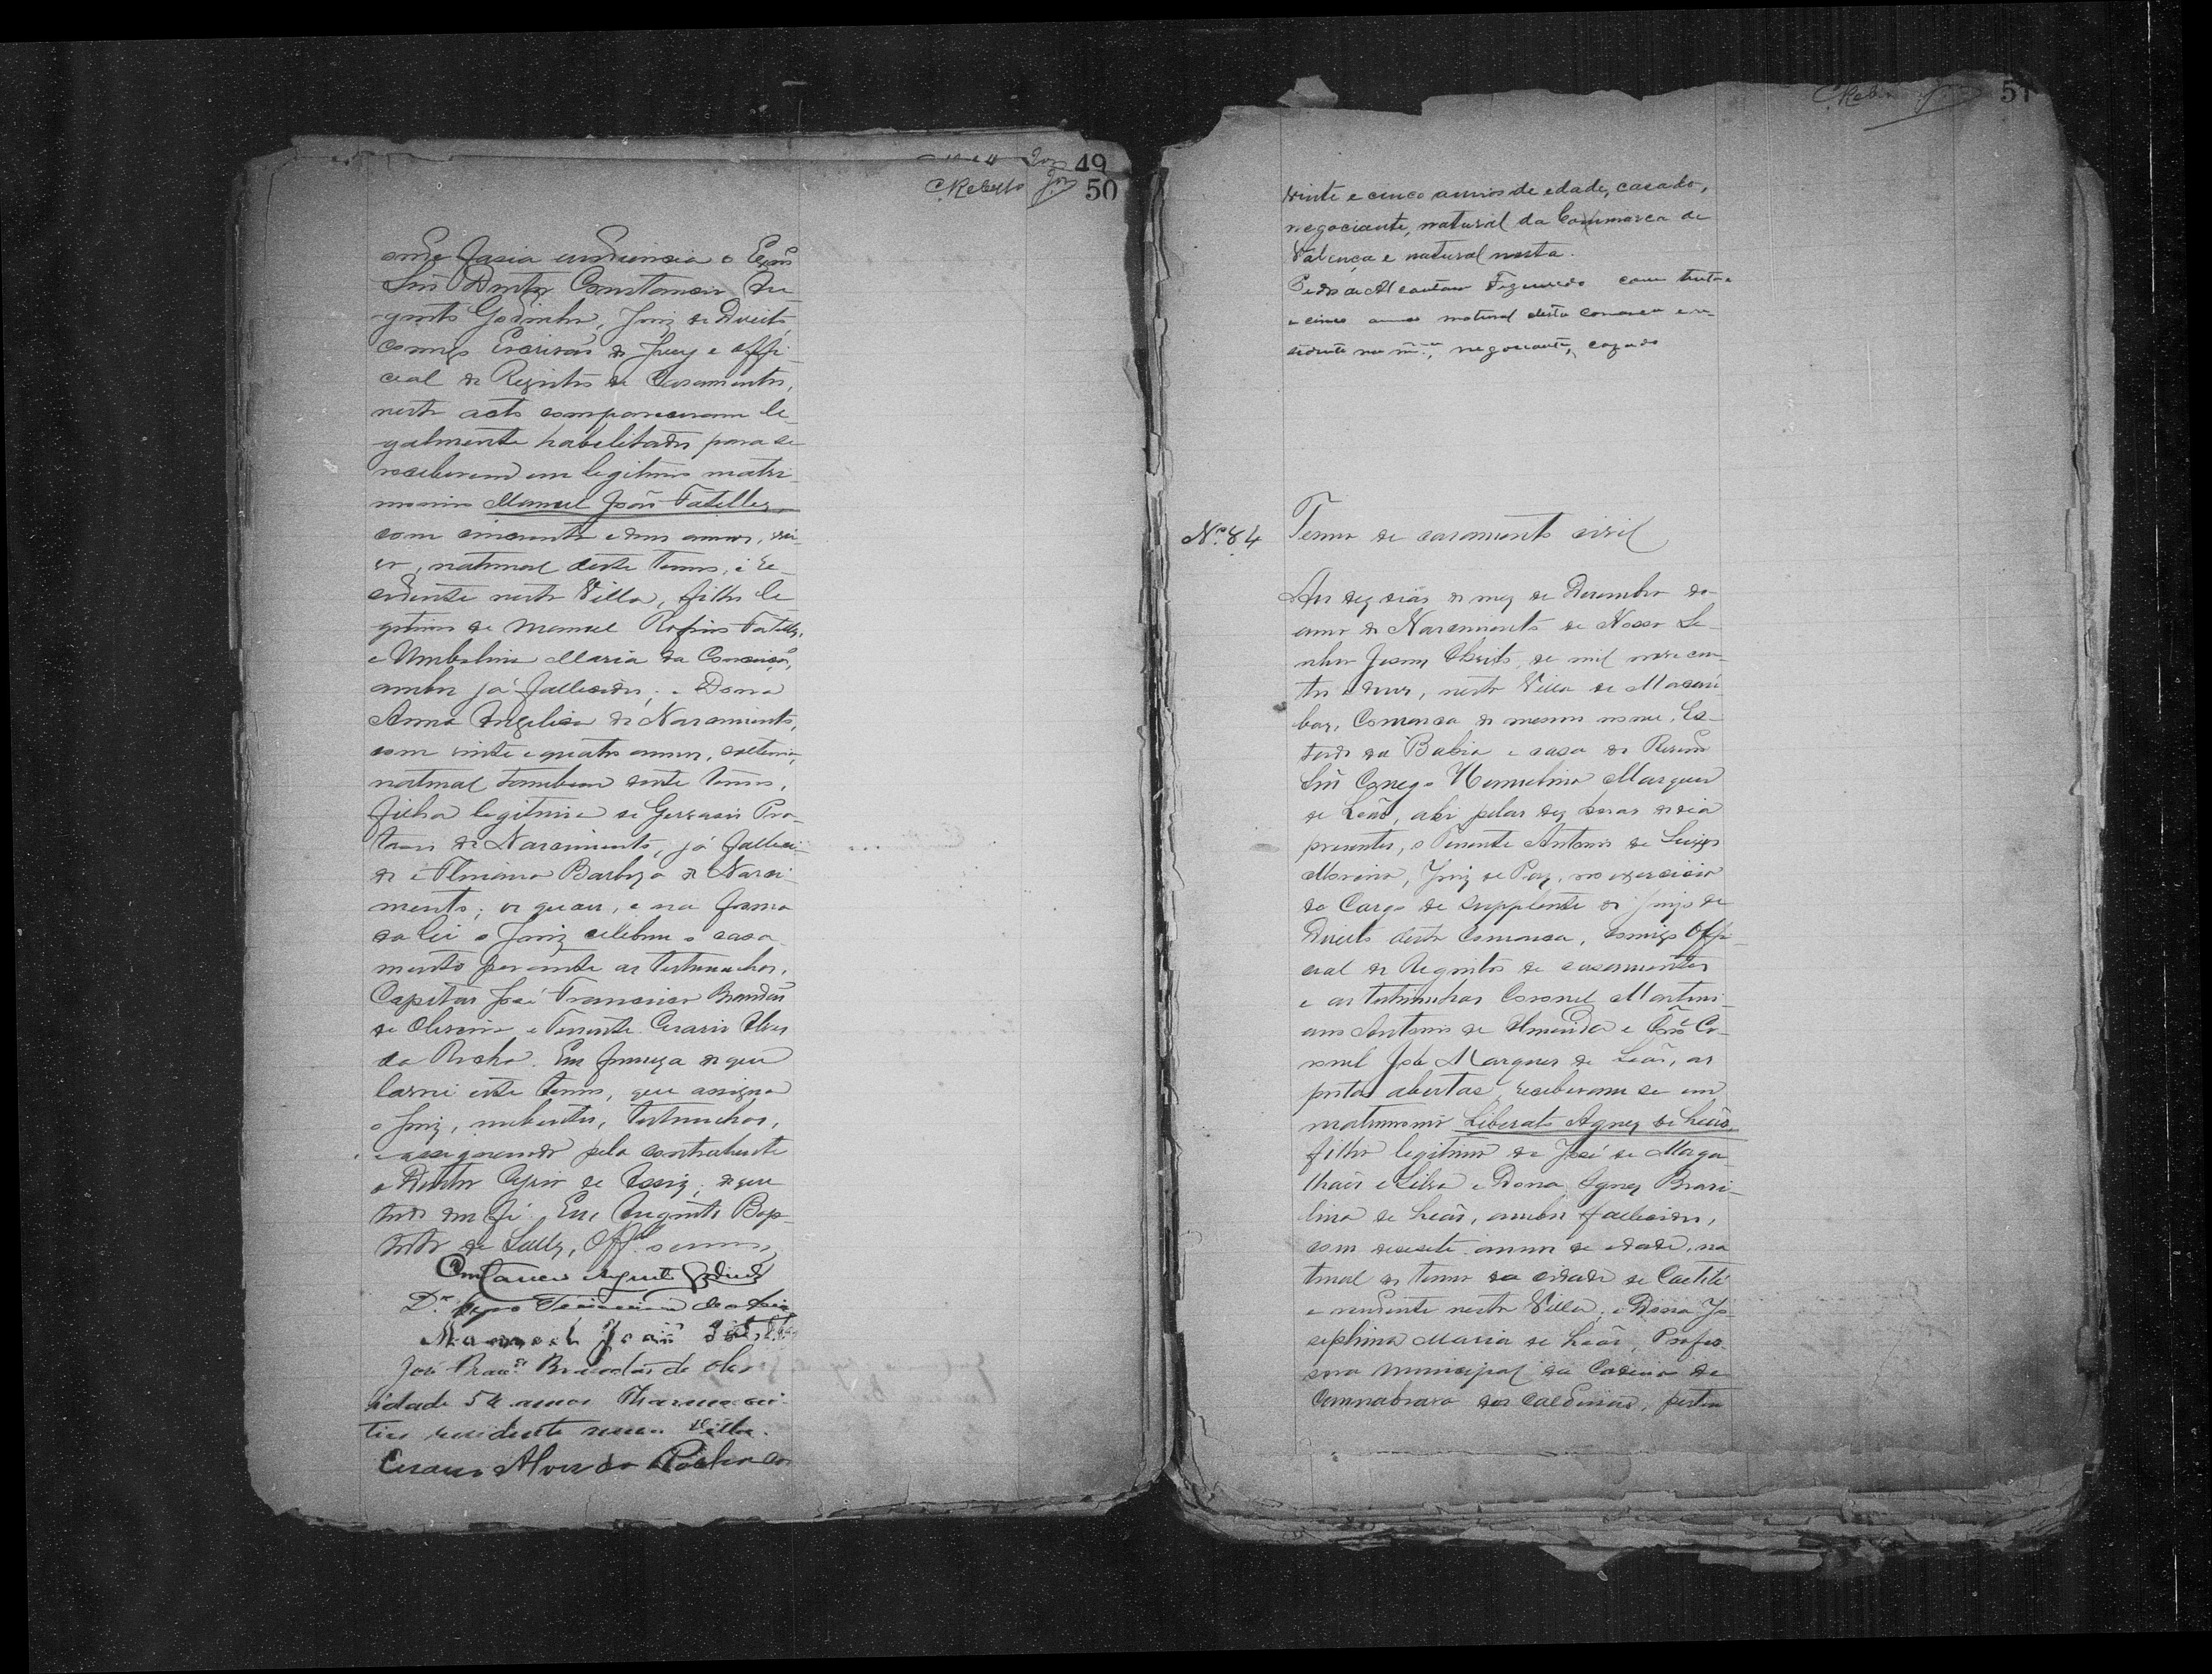 49
C. Rebello Jor 50
onde fasia audiencia o Exmo
Snr Doutor Constancio Au
gusto Godinho, Juiz de Direito,
comigo Escrivão do Jury e offi
cial do Registro de Casamentos,
neste acto compareceram le
galmente habilitados para se
receberem em legitimo matri
monio Manuel João Fatelles,
com cincoenta e dous annos, viu
vo, natural deste termo, e re
sidente nesta Villa, filho le
gitimo de Manuel Rofino Fatelles,
e Umbelina Maria da Conceição,
ambos já fallecidos; e Dona
Anna Angelica do Nascimento,
com vinte e quatro annos, solteira,
natural tambem deste termo,
filha legitima de Gervasio Pro
tasio do Nascimento, já falleci
do e Floriana Barboza do Nasci
mento; os quaes, e na forma
da lei o Juiz celebrou o casa
mento perante as testemunhas,
Capitão José Francisco Brandão
de Oliveira e Tenente Cesario Alves
da Rocha. Em firmeza do que
lavrei este termo, que assigna
o Juiz, nubentes, testemunhas,
e assignando pela contrahente
o Doutor Cypro de Assiz; do que
tudo dou fé. Eu, Augusto Bap
tista de Salles, Offal o escrevi,
Constancio Augusto Godinho
Dr.
Manoel João
José Franco Brandão de Olivra
idade 54 annos Pharmaceu
tico residente nessa Villa.
Cesario Alves da Rocha com
C. Rebello 51
vinte e cinco annos de edade, casado,
negociante, natural da Commarca de
Valença e natural nesta.
Pedro de Alcantara Figueredo com trinta
e cinco annos natural desta comarca e re
sidente na mma, negociante, cazado
No. 84 Termo de casamento civil
Aos dez dias do mez de Dezembro do
anno do Nascimento de Nosso Se
nhor Jesus Christo, de mil nove cen
tos e dous, nesta Villa de Macahú
bas, Comarca do mesmo nome, Es
tado da Bahia e casa do Revmo
Snr Conego Hermelino Marques
de Leão, ahi pelas dez horas do dia
presentes, o Tenente Antonio de Souza
Moreira, Juiz de Paz, no exercicio
do Cargo de supplente do juizo de
Direito desta Comarca, comigo Offi
cial do Registro de casamentos
e as testemunhas Coronel Martini
ano Antonio de Almeida e Tne Co
ronel José Marques de Leão, as
portas abertas, receberam se em
matrimonio Liberato Agnez de Leão,
filho legitimo de José de Maga
lhães e Silva e Dona Ignez Brasi
lina de Leão, ambos fallecidos,
com desesete annos de edade, na
tural do termo da cidade de Caetité
e residente nesta Villa; e Dona Jo
sephina Maria de Leão, Profes
sora municipal da Cadeira de
Cannabrava dos Caldeirões, perten